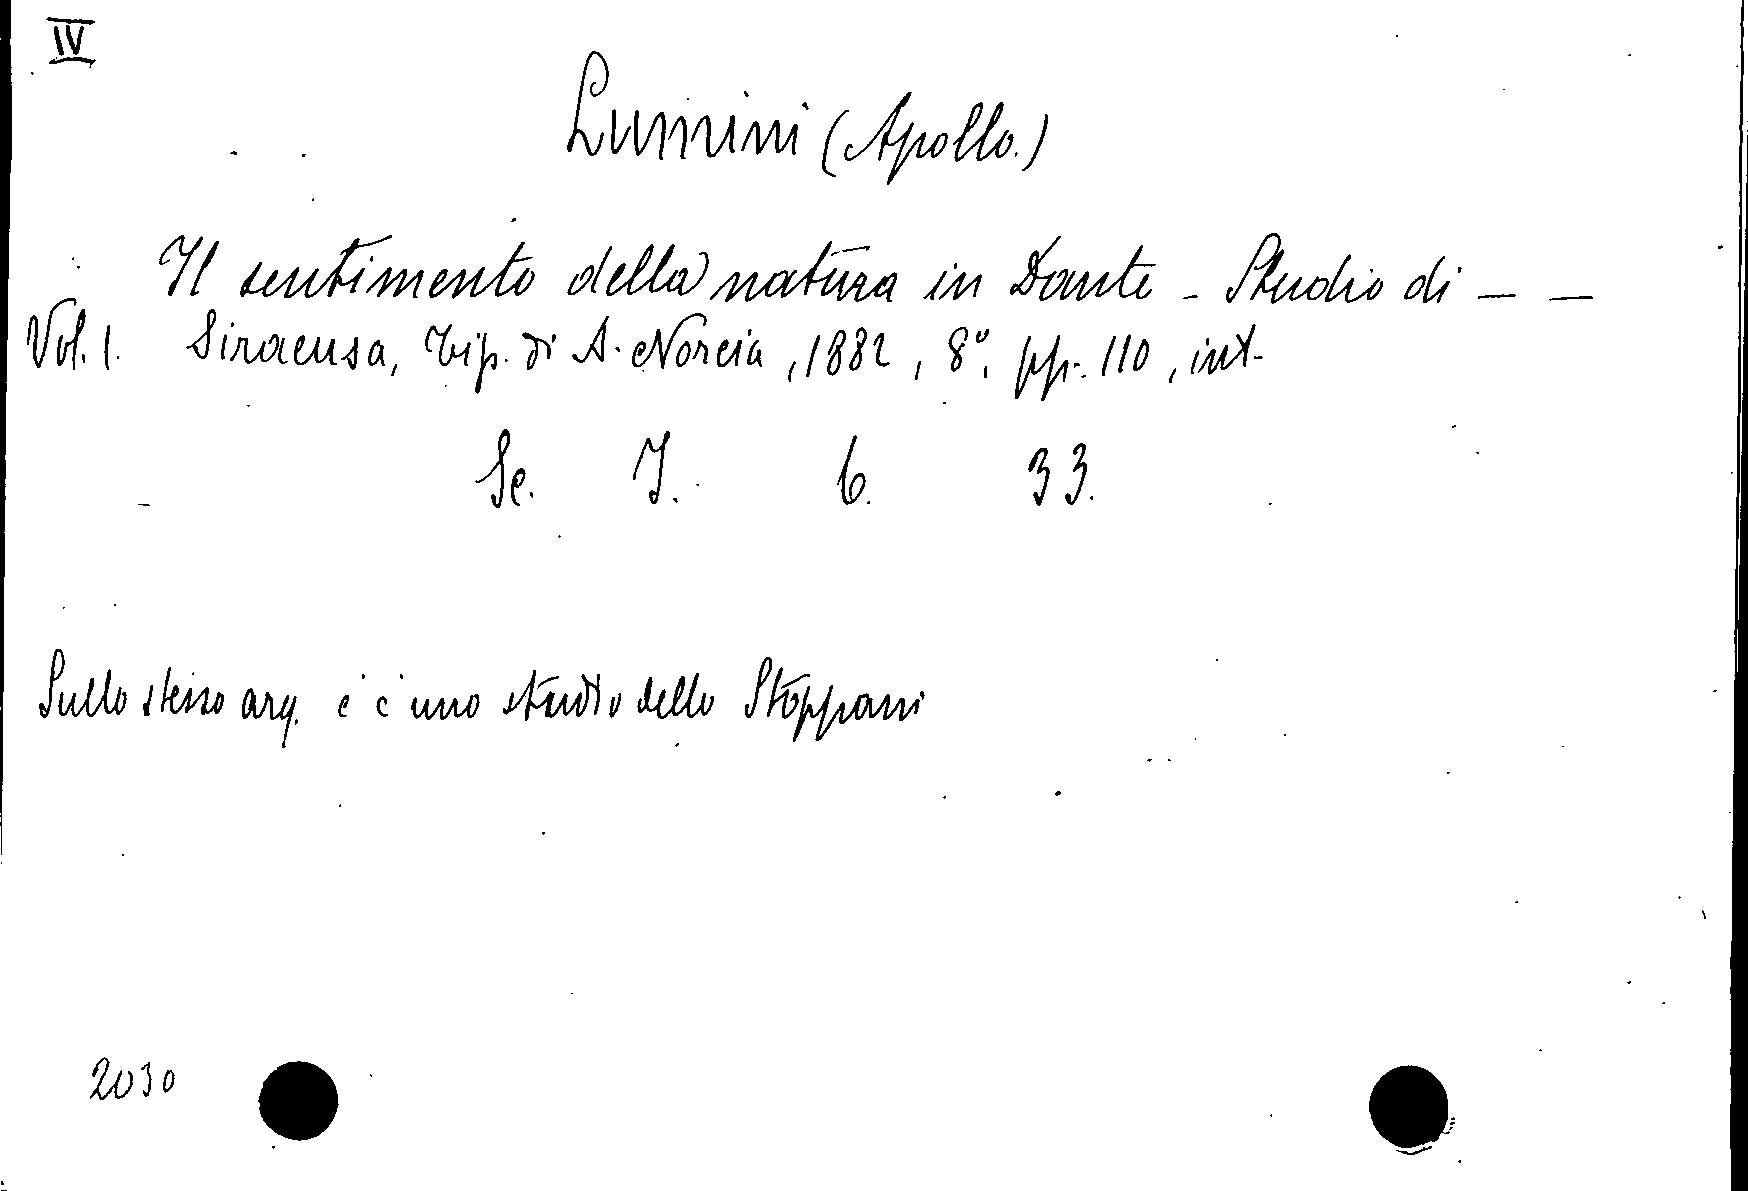 IV
Lumini (Apollo.)
Il sentimento della natura in Dante - Studio di — —
Vol. 1. Siracusa, tip. di A. Norcia, 1882, 8º, pp. 110, int.
Sc. I. 6. 33.
Sullo stesso arg. c'è uno studio dello Stoppani
2030